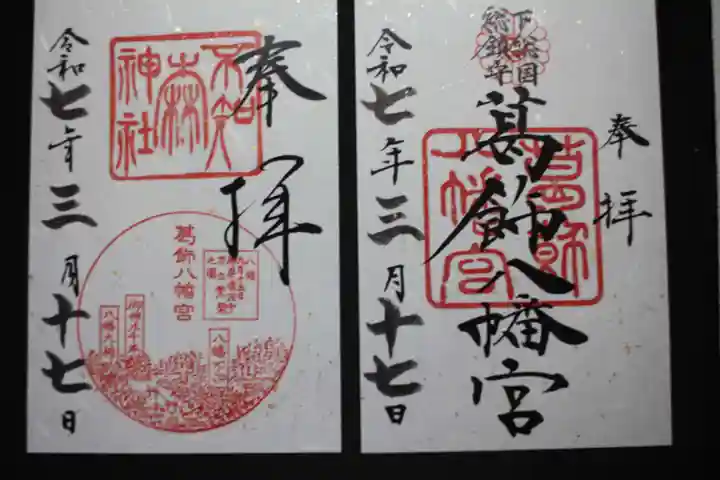 奉拝
下総国
総鎮守
葛飾八幡宮
葛飾八幡宮
令和七年三月十七日
奉拝
不知森神社
葛飾八幡宮
令和七年三月十七日